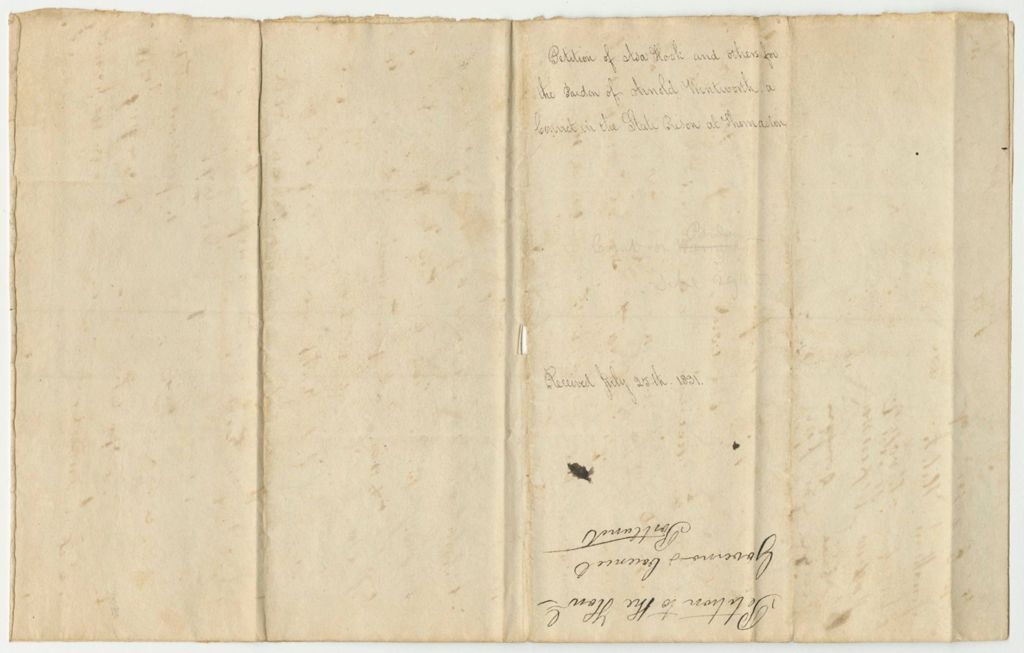 Petition of Asa Hook and others for
the Pardon of Arnold Wentworth, a
Convict in the State Prison at Thomaston
Received July 25th. 1831.
Petition to the Honl
Governor & Council
Portland